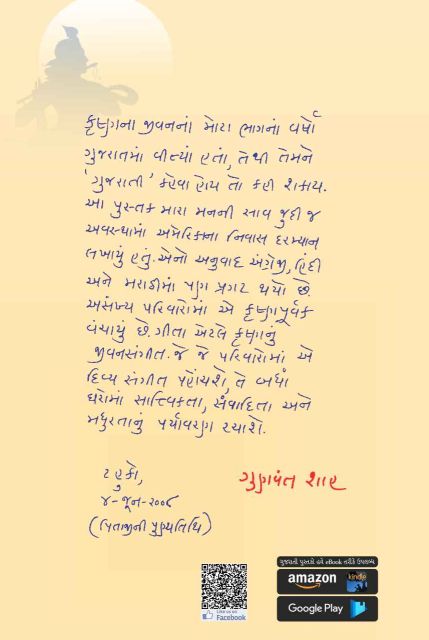 કૃષ્ણના જીવનનાં મોટા ભાગનાં વર્ષો
ગુજરાતમાં વીત્યાં હતાં, તેથી તેમને
'ગુજરાતી' કહેવા હોય તો કહી શકાય.
આ પુસ્તક મારા મનની સાવ જુદી જ
અવસ્થામાં અમેરિકાના નિવાસ દરમ્યાન
લખાયું હતું. એનો અનુવાદ અંગ્રેજી, હિંદી
અને મરાઠીમાં પણ પ્રગટ થયો છે.
અસંખ્ય પરિવારોમાં એ કૃષ્ણપૂર્વક
વંચાયું છે. ગીતા એટલે કૃષ્ણનું
જીવનસંગીત. જે જે પરિવારોમાં એ
દિવ્ય સંગીત પહોંચશે, તે બધાં
ઘરોમાં સાત્ત્વિકતા, સંવાદિતા અને
મધુરતાનું પર્યાવરણ રચાશે.
ટહુકો,
૪-જૂન-૨૦૦૮
(પિતાજીની પુણ્યતિથિ)
ગુણવંત શાહ
ગુજરાતી પુસ્તકો હવે eBook તરીકે ઉપલબ્ધ
amazon kindle
Google Play
Like us on
Facebook